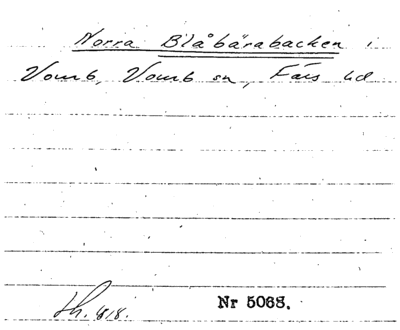 Norra Blåbärabacken i
Vomb, Vomb sn, Färs hd
Nr 5068.